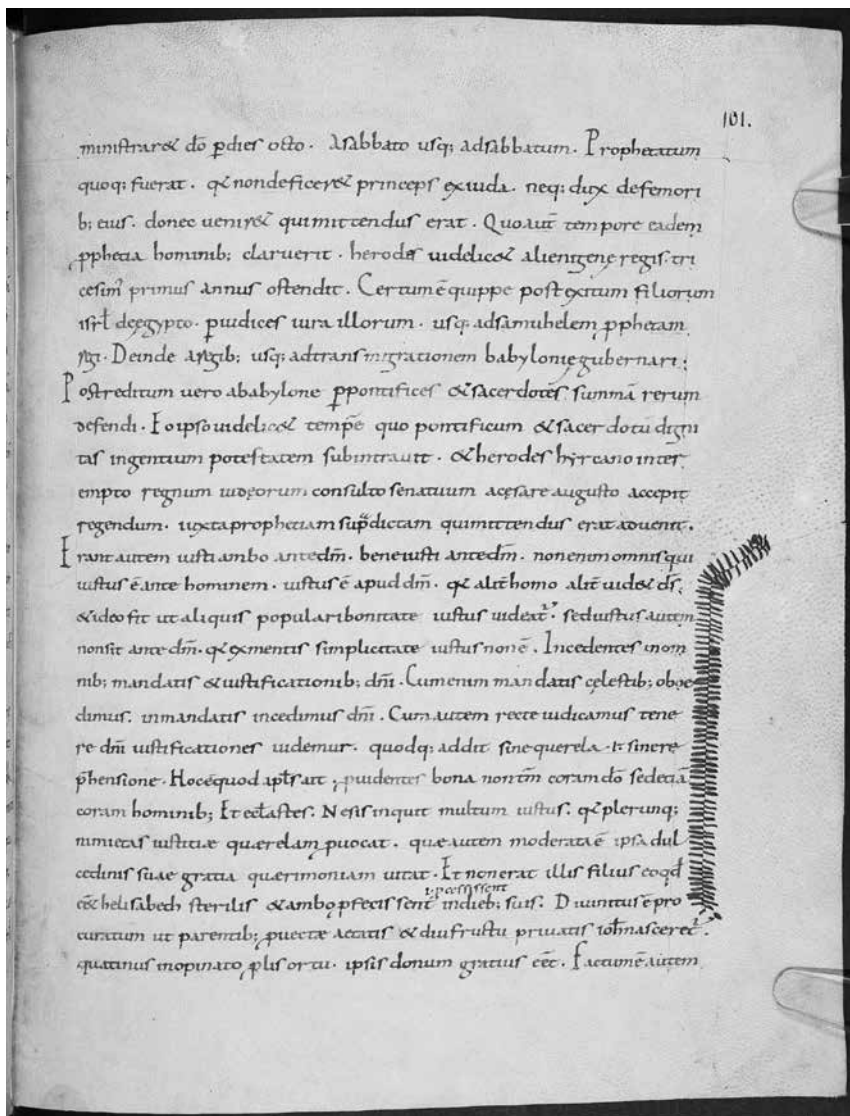 101.
ministrar& dō ꝑdies octo. Asabbato usq; adsabbatum. Prophetatum
quoq; fuerat. q̄ nondeficer& princeps exiuda. neq; dux defemori
b; eius. donec uenir& quimittendus erat. Quoaut̄ tempore eadem
ꝓphetia hominib; claruerit. herodis uidelic& alienigenę regis. tri
cesim; primus annus ostendit. Certum ē quippe postexitum filiorum
isrł deęgypto. ꝑiudices iura illorum. usq; adsamuhelem ꝓphetam
regi. Deinde aregib; usq; adtransmigrationem babylonię gubernari;
Postreditum uero ababylone ꝑpontifices &sacerdotes. summā rerum
defendi. Eoipso uidelic& temꝑe quo pontificum &sacerdotū digni
tas ingentium potestatem subintrauit. &herodes hyrcano inter
empto regnum iudęorum consulto senatuum acęsare augusto accepit
regendum. iuxtaprophetiam supͣdictam quimittendus erat aduenit.
Erantautem iusti ambo antedm̄. beneiusti antedm̄. nonenim omnis qui
iustus ē ante hominem. iustus ē apud dm̄. q̄ alit̄ homo alit̄ uid& ds̄;
&ideo fit ut aliquis popularibonitate iustus uideat̄. sediustus autem
nonsit ante dm̄. q̄ exmentis simplicitate iustus non ē. Incedentes inom
nib; mandatis &iustificationib; dn̄i. Cumenim mandatis cęlestib; oboe
dimus. inmandatis incedimus dn̄i. Cumautem recte iudicamus tene
re dn̄i iustificationes uidemur. quodq; addit sinequerela. ł sinere
p̄hensione. Hoc ē quod apłs ait ꝓuidentes bona non tm̄ coram dō sed etiā
coram hominib; Et eccłastes. Nesis inquit multum iustus. q̄ plerunq;
nimietas iustitiæ quærelam ꝓuocat. quæautem moderata ē ipsa dul
cedinis suae gratia quærimoniam uitat. Et nonerat illis filius eoqđ
eēt helisabeth sterilis &ambo ꝓfecissent indieb; suis. Diuinitus ē pro
i. ꝓcessissent
curatum ut parentib; ꝓuectæ aetatis & diu fructu priuatis ioħ nasceret̄.
quatinus inopinato ꝓlis ortu. ipsis donum gratius eēt. Factum ē autem